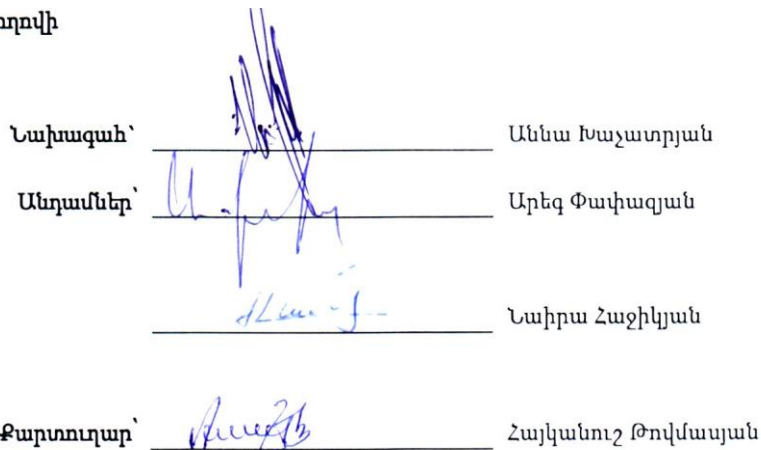 Նախագահ՝ Աննա Խաչատրյան
Անդամներ՝ Արեգ Փափազյան
Նաիրա Հաջիկյան
Քարտուղար՝ Հայկանուշ Թովմասյան